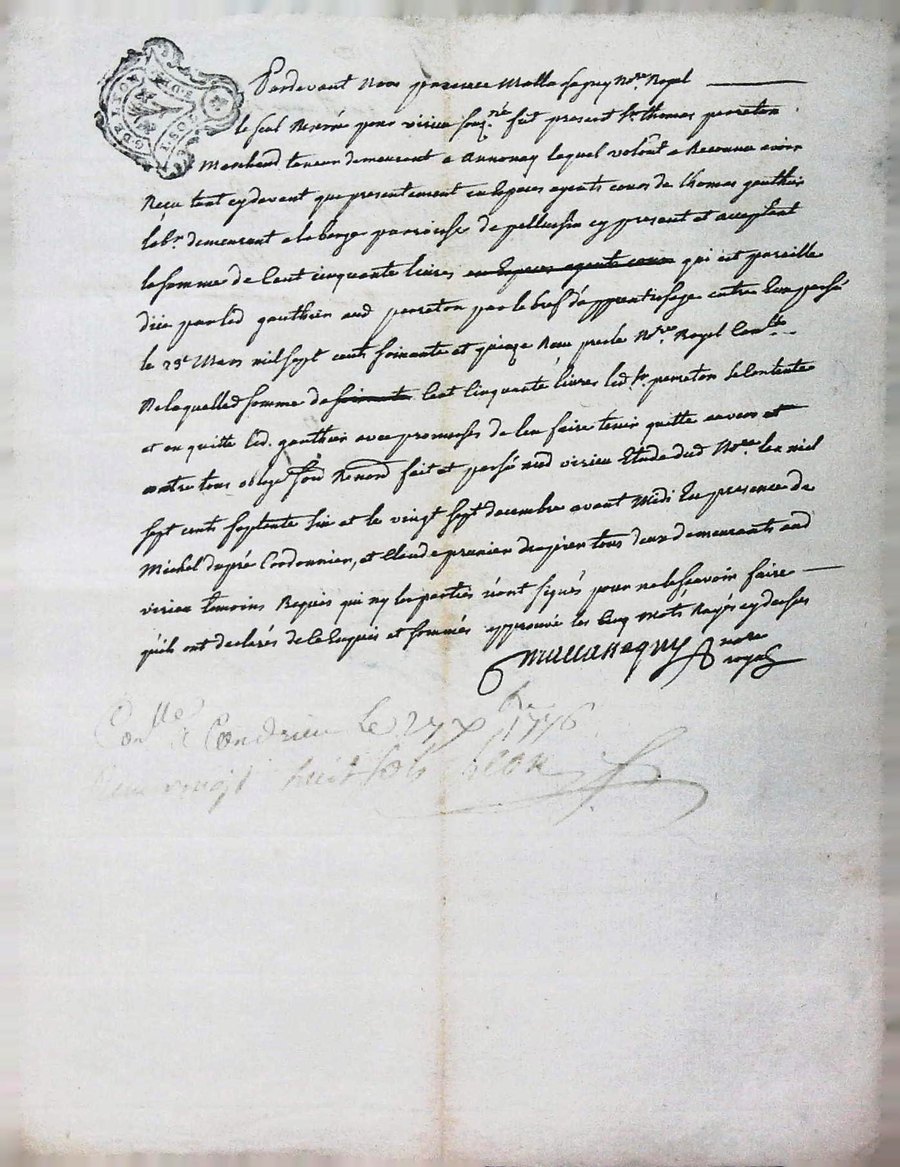 G DE LYON
DIX SOLS
Pardevant Nous Mallassagny No.re Royal
le seel Renové pour virieu souz.né fut present Sr. thomas perreton
Marchand taneur demeurant a Annonay lequel volont a Reconnu avoir
Reçu tant cydevant que presentement en Especes agents cours de thomas gauthier
lab.r demeurant a la barge parroisse de pellussin cy present et acceptant
la somme de Cent cinquante livres en Especes agents cours qui est pareille
düe par led gauthier aud perreton par le bref d'apprentissage entre Eux passé
le 23e Mars mil sept cents soixante et quinze Reçu No.re Royal
De laquelled somme de soixante Cent Cinquante livres led. Sr. perreton se Contente
et en quitte led. gauthier avec promesses de l'en faire tenir quitte envers et
contre tous oblige. soud Renond fait et passé aud virieu Etude dud No.re l'an mil
sept cents septente six et le vingt sept decembre avant Midi En presence de
Michel dupré Cordonnier, et Claude prunier dragiren tous deux demeurants aud
virieu temoins Requis qui ny les parties n'ont signés pour ne le sçavoir faire
qu'ils ont declarés de ce Enquis et sommés approuvé les Cinq mots Rayés cy dessus
Mallassagny no.re
royal
Con.lle a Condrieu le 27 Xbre 1776.
vingt huit sols